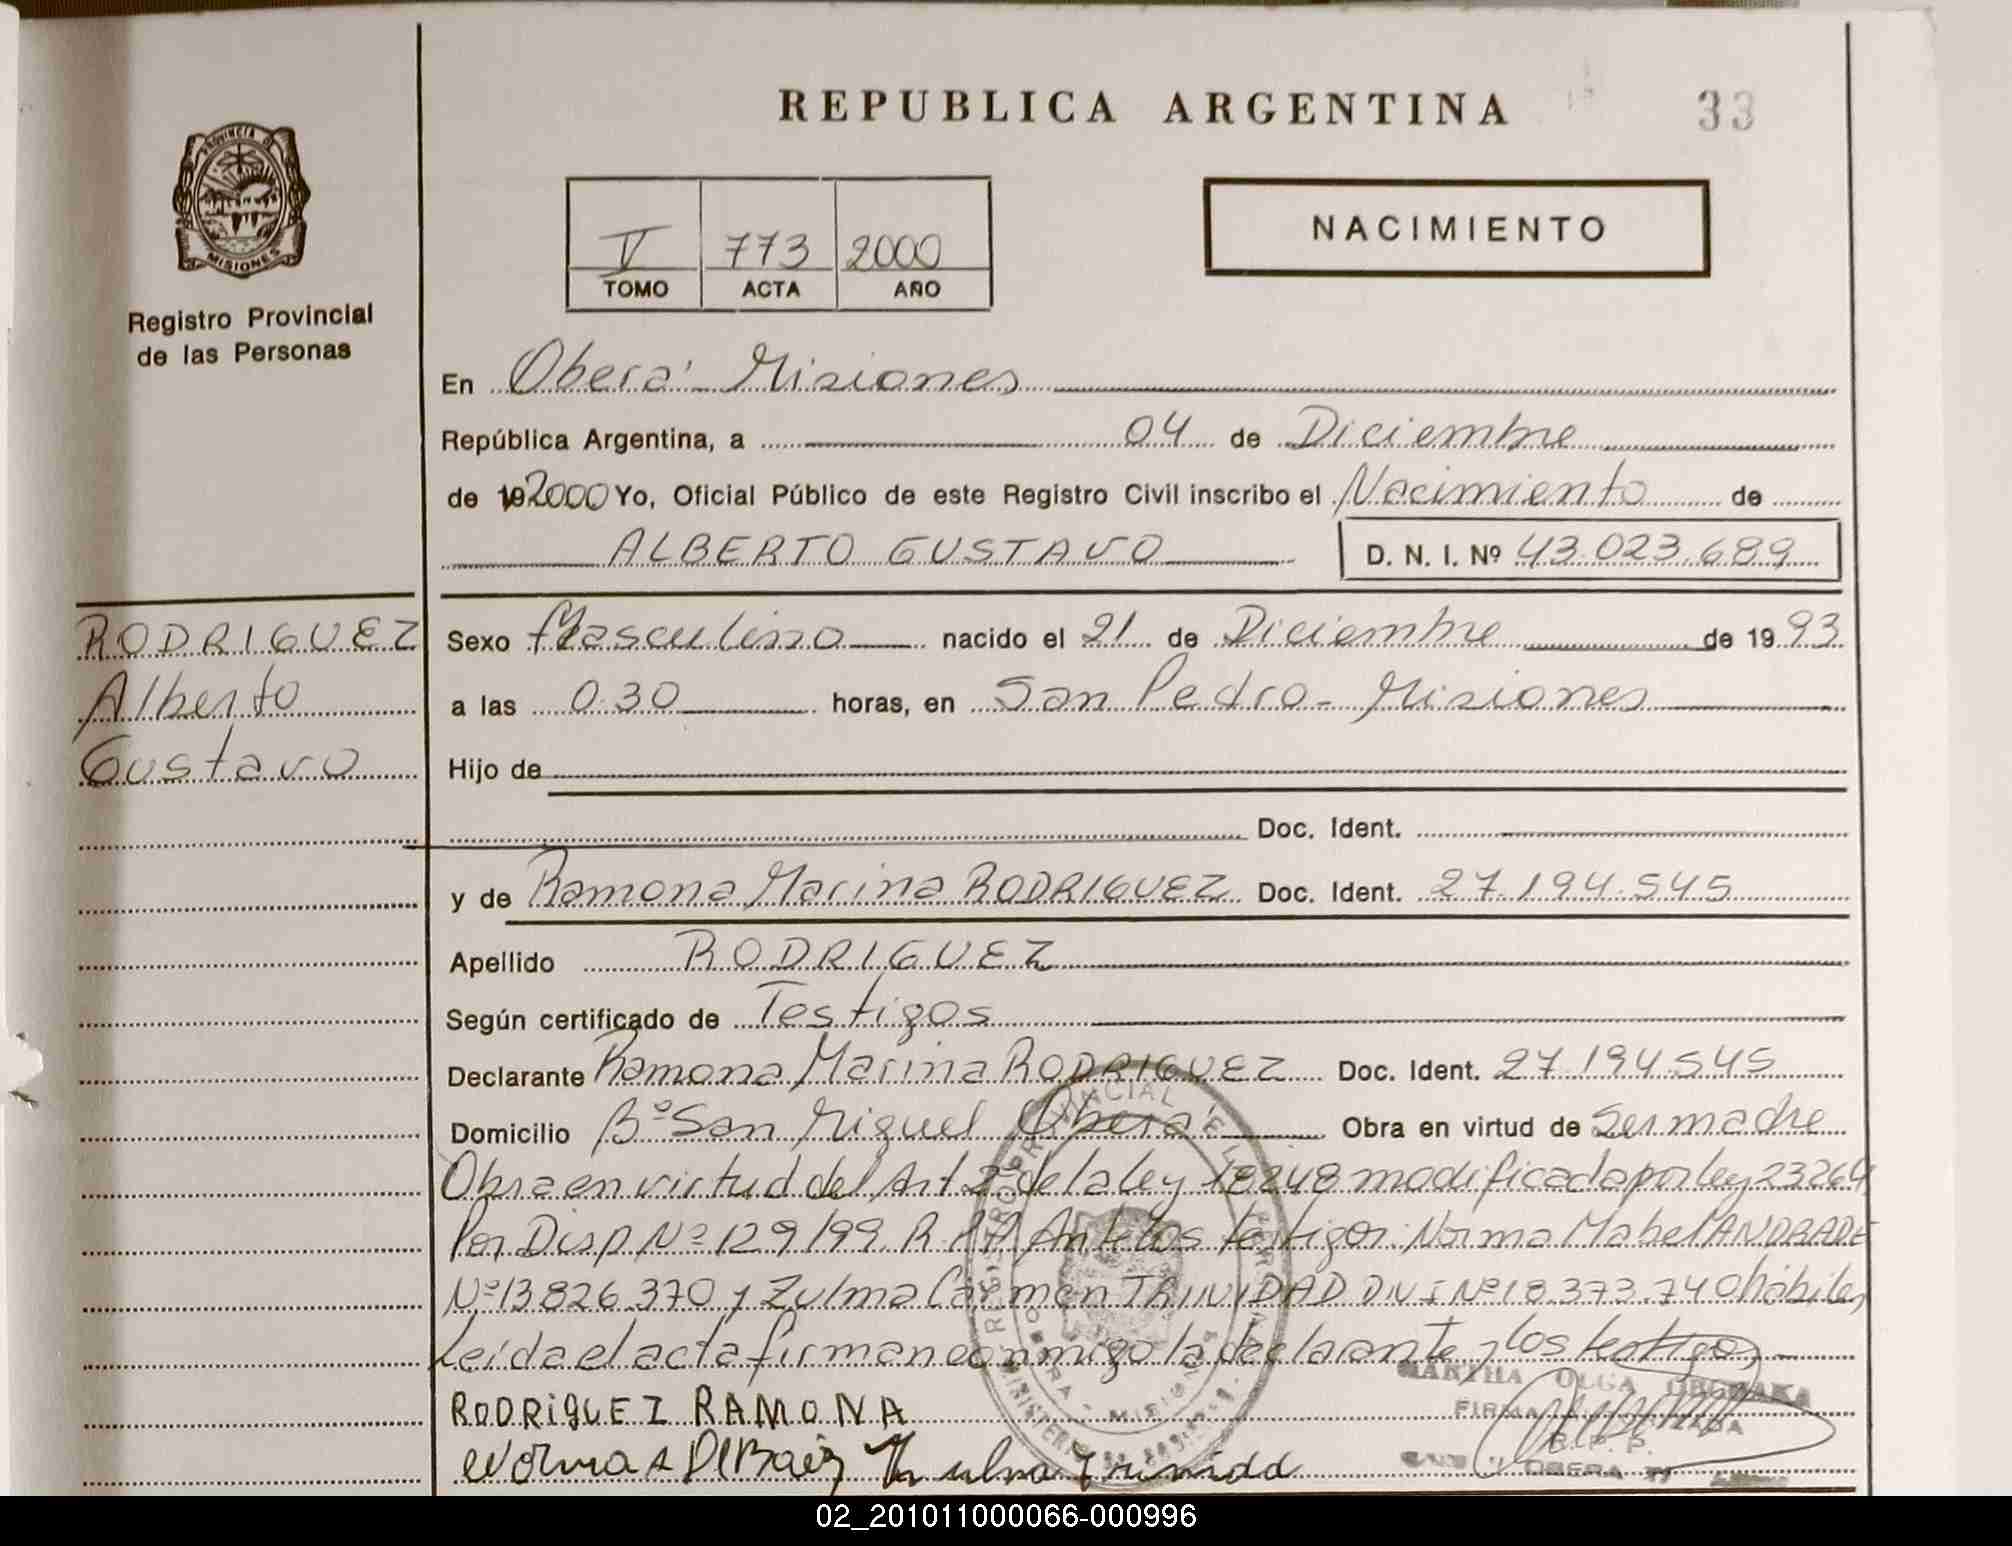 REPUBLICA ARGENTINA
33
PROVINCIA DE
MISIONES
Registro Provincial
de las Personas
V 773 2000
TOMO ACTA AÑO
NACIMIENTO
En Oberá - Misiones
República Argentina, a 04 de Diciembre
de 192000 Yo, Oficial Público de este Registro Civil inscribo el Nacimiento de
ALBERTO GUSTAVO D. N. I. Nº 43.023.689
RODRIGUEZ
Alberto
Gustavo
Sexo Masculino nacido el 21 de Diciembre de 1993
a las 0.30 horas, en San Pedro - Misiones
Hijo de
Doc. Ident.
y de Ramona Marina RODRIGUEZ Doc. Ident. 27.194.545
Apellido RODRIGUEZ
Según certificado de Testigos
Declarante Ramona Marina RODRIGUEZ Doc. Ident. 27.194.545
Domicilio Bº San Miguel Oberá Obra en virtud de Ser madre
Obra en virtud del Art 2º de la ley 18248 modificada por ley 23264
Por Disp Nº 129/99 R.P.P. Ante los testigos: Norma Mabel ANDRADE
Nº 13826.370 y Zulma Carmen TRINIDAD DNI Nº 18.373.740 hábiles
Leída el acta firman conmigo la declarante y los testigos
RODRIGUEZ RAMONA
Norma A De Baez Zulma Trinidd
MARTHA OLGA
FIRMA AUTORIZADA
R. P. P.
OBERA
02_201011000066-000996